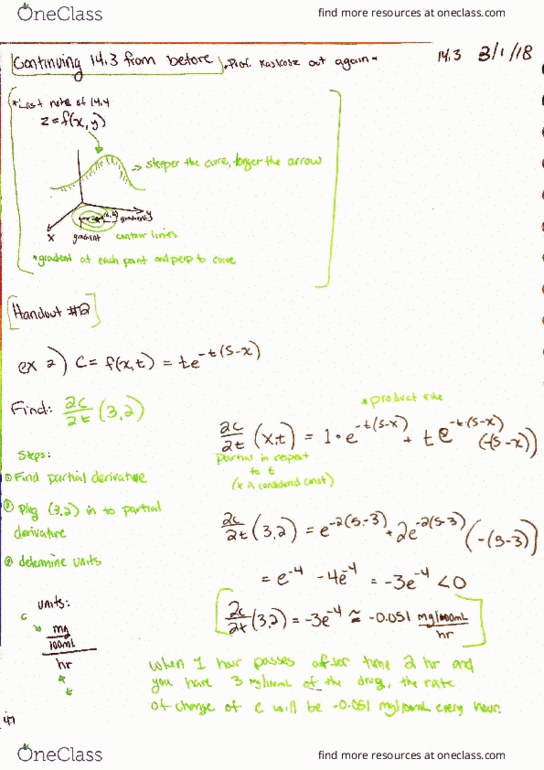 OneClass
find more resources at oneclass.com
Continuing 14.3 from before • Prof. Kaskosz out again •
14.3 3/1/18
*Last note of 14.4
z=f(x,y)
→ steeper the curve, longer the arrow
y
x gradient contour lines
*gradient at each point and perp to curve
Handout #2
ex 2) C= f(x,t) = te^-t(5-x)
Find: ∂c/∂t (3,2)
*product rule
∂c/∂t (x,t) = 1•e^-t(5-x) + te^-t(5-x) (-(5-x))
Partial in respect
to t
(x is considered const)
Steps:
① Find partial derivative
② Plug (3,2) in to partial
derivative
③ determine units
∂c/∂t (3,2) = e^-2(5-3) + 2e^-2(5-3) (-(5-3))
= e^-4 -4e^-4 = -3e^-4 <0
∂c/∂t (3,2) = -3e^-4 ≅ -0.051 mg/100mL/hr
units:
c
mg
100mL
hr
t
when 1 hour passes after time 2 hr and
you have 3 mg/100mL of the drug, the rate
of change of c will be -0.051 mg/100mL every hour.
OneClass
find more resources at oneclass.com